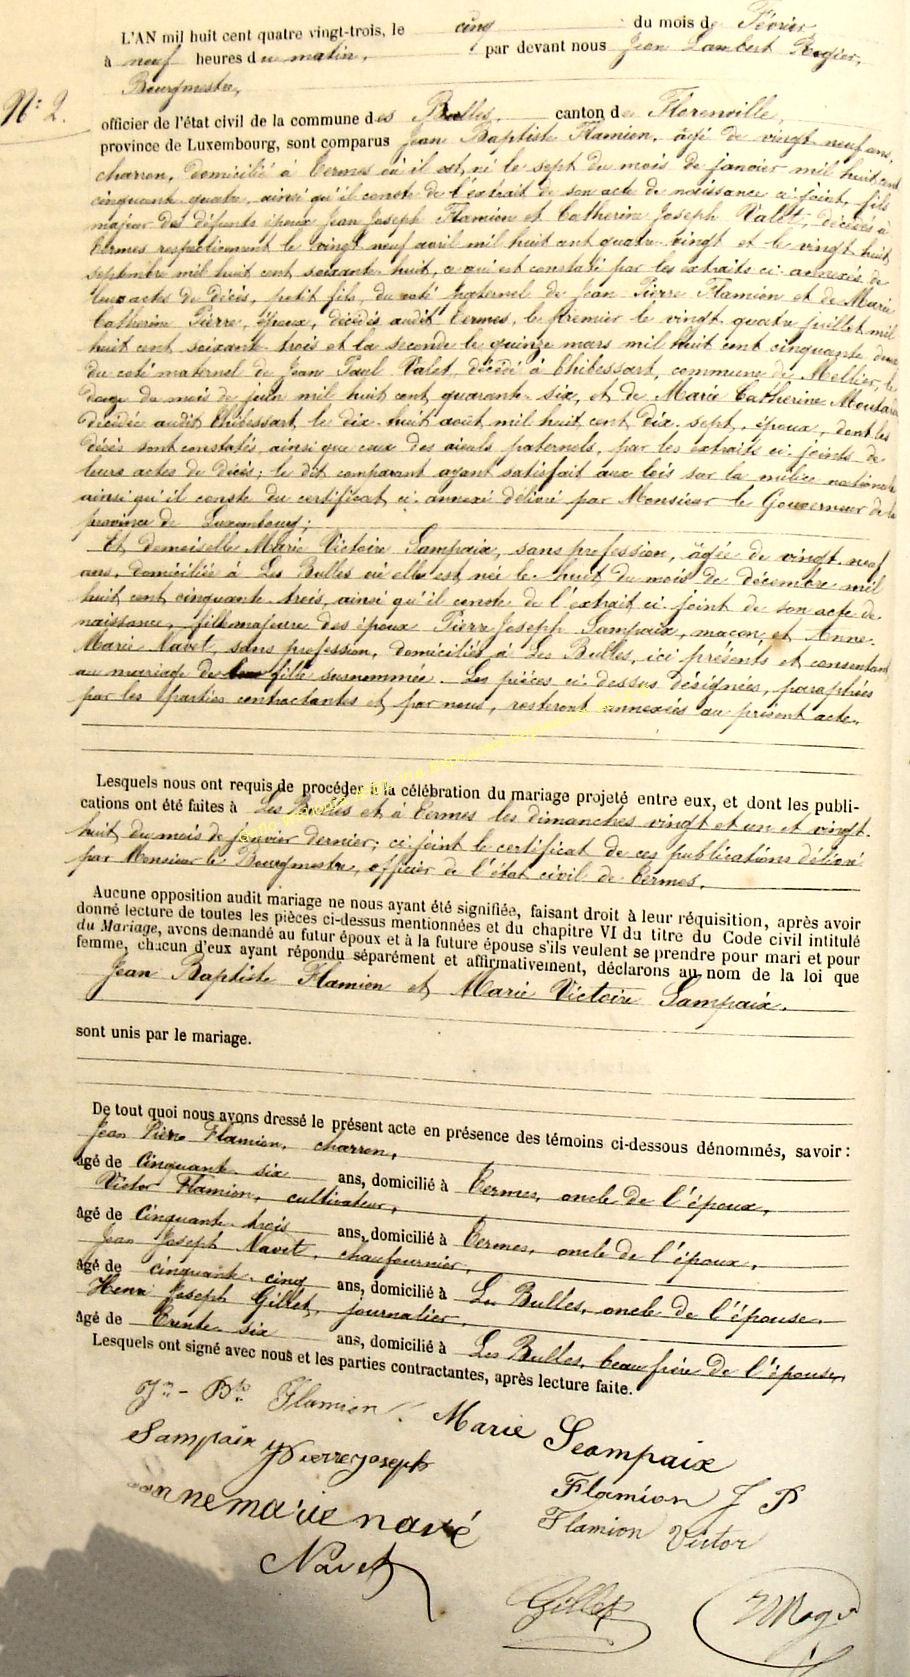 L'AN mil huit cent quatre vingt-trois, le cinq du mois de Février
à neuf heures du matin, par devant nous Jean Lambert Rogier,
Bourgmestre,
N° 2.
officier de l'état civil de la commune des Bulles, canton de Florenville,
province de Luxembourg, sont comparus Jean Baptiste Flamion, âgé de vingt neuf ans,
charron, domicilié à Termes où il est né le sept du mois de janvier mil huit cent
cinquante quatre, ainsi qu'il conste de l'extrait de son acte de naissance ci-joint, fils
majeur des défunts époux Jean Joseph Flamion et Catherine Joseph Valet, décédés à
Termes respectivement le vingt neuf avril mil huit cent quatre-vingt et le vingt huit
septembre mil huit cent soixante-huit, ce qui est constaté par les extraits ci-annexés de
leurs actes de décès, petit fils, du coté paternel de Jean Pierre Flamion et de Marie
Catherine Pierre, époux, décédés audit Termes, le premier le vingt-quatre juillet mil
huit cent soixante-trois et la seconde le quinze mars mil huit cent cinquante deux
du coté maternel de Jean Paul Valet, décédé à Thibessart, commune de Mellier, le
douze du mois de juin mil huit cent quarante-six, et de Marie Catherine
décédée audit Thibessart le dix-huit août mil huit cent dix-sept, époux, dont les
décès sont constatés, ainsi que ceux des aïeuls paternels, par les extraits ci-joints de
leurs actes de décès; le dit comparant ayant satisfait aux lois sur la milice nationale
ainsi qu'il conste du certificat ci-annexé délivré par Monsieur le Gouverneur de la
province de Luxembourg;
Et demoiselle Marie Victoire Sampaix, sans profession, âgée de vingt neuf
ans, domiciliée à Les Bulles où elle est née le huit du mois de décembre mil
huit cent cinquante-trois, ainsi qu'il conste de l'extrait ci-joint de son acte de
naissance, fille majeure des époux Pierre Joseph Sampaix, maçon, et Anne
Marie Navet, sans profession, domiciliés à Les Bulles, ici présents et consentant
au mariage de leur fille susnommée. Les pièces ci-dessus désignées, paraphées
par les parties contractantes et par nous, resteront annexées au présent acte.
Lesquels nous ont requis de procéder à la célébration du mariage projeté entre eux, et dont les publi-
cations ont été faites à Les Bulles et à Termes les dimanches vingt et un et vingt-
huit du mois de janvier dernier; ci-joint le certificat de ces publications délivré
par Monsieur le Bourgmestre, officier de l'état civil de Termes.
Aucune opposition audit mariage ne nous ayant été signifiée, faisant droit à leur réquisition, après avoir
donné lecture de toutes les pièces ci-dessus mentionnées et du chapitre VI du titre du Code civil intitulé
du Mariage, avons demandé au futur époux et à la future épouse s'ils veulent se prendre pour mari et pour
femme, chacun d'eux ayant répondu séparément et affirmativement, déclarons au nom de la loi que
Jean Baptiste Flamion et Marie Victoire Sampaix.
sont unis par le mariage.
De tout quoi nous avons dressé le présent acte en présence des témoins ci-dessous dénommés, savoir:
Jean Pierre Flamion, charron,
âgé de Cinquante-six ans, domicilié à Termes, oncle de l'époux,
Victor Flamion, cultivateur,
âgé de Cinquante-trois ans, domicilié à Termes, oncle de l'époux,
Jean Joseph Navet, chaufournier,
âgé de cinquante-cinq ans, domicilié à Les Bulles, oncle de l'épouse
Henri Joseph Gillet, journalier,
âgé de Trente-six ans, domicilié à Les Bulles, beau frère de l'épouse,
Lesquels ont signé avec nous et les parties contractantes, après lecture faite.
Jn - Bte Flamion Marie Scompaix
Sampaix pierre joseph
Flamion J P
anne marie navé Flamion Victor
Navet
Gillet